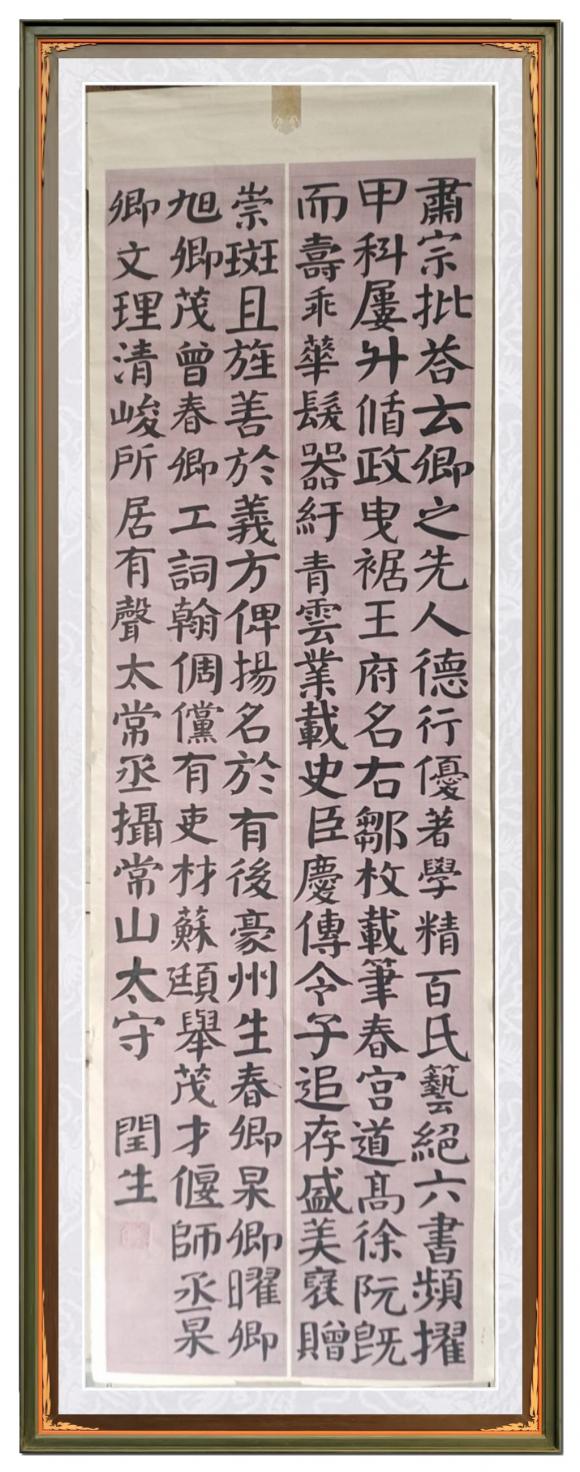 肅宗批荅云卿之先人德行優著學精百氏藝絕六書頻擢
甲科屢升循政曳裾王府名右鄒枚載筆春宮道髙徐阮既
而壽乖華髮器紆青雲業載史臣慶傳令子追存盛美襃贈
崇斑且旌善於義方俾揚名於有後豪州生春卿杲卿曜卿
旭卿茂曾春卿工詞翰倜儻有吏材蘇頲舉茂才偃師丞杲
卿文理清峻所居有聲太常丞攝常山太守 閏生